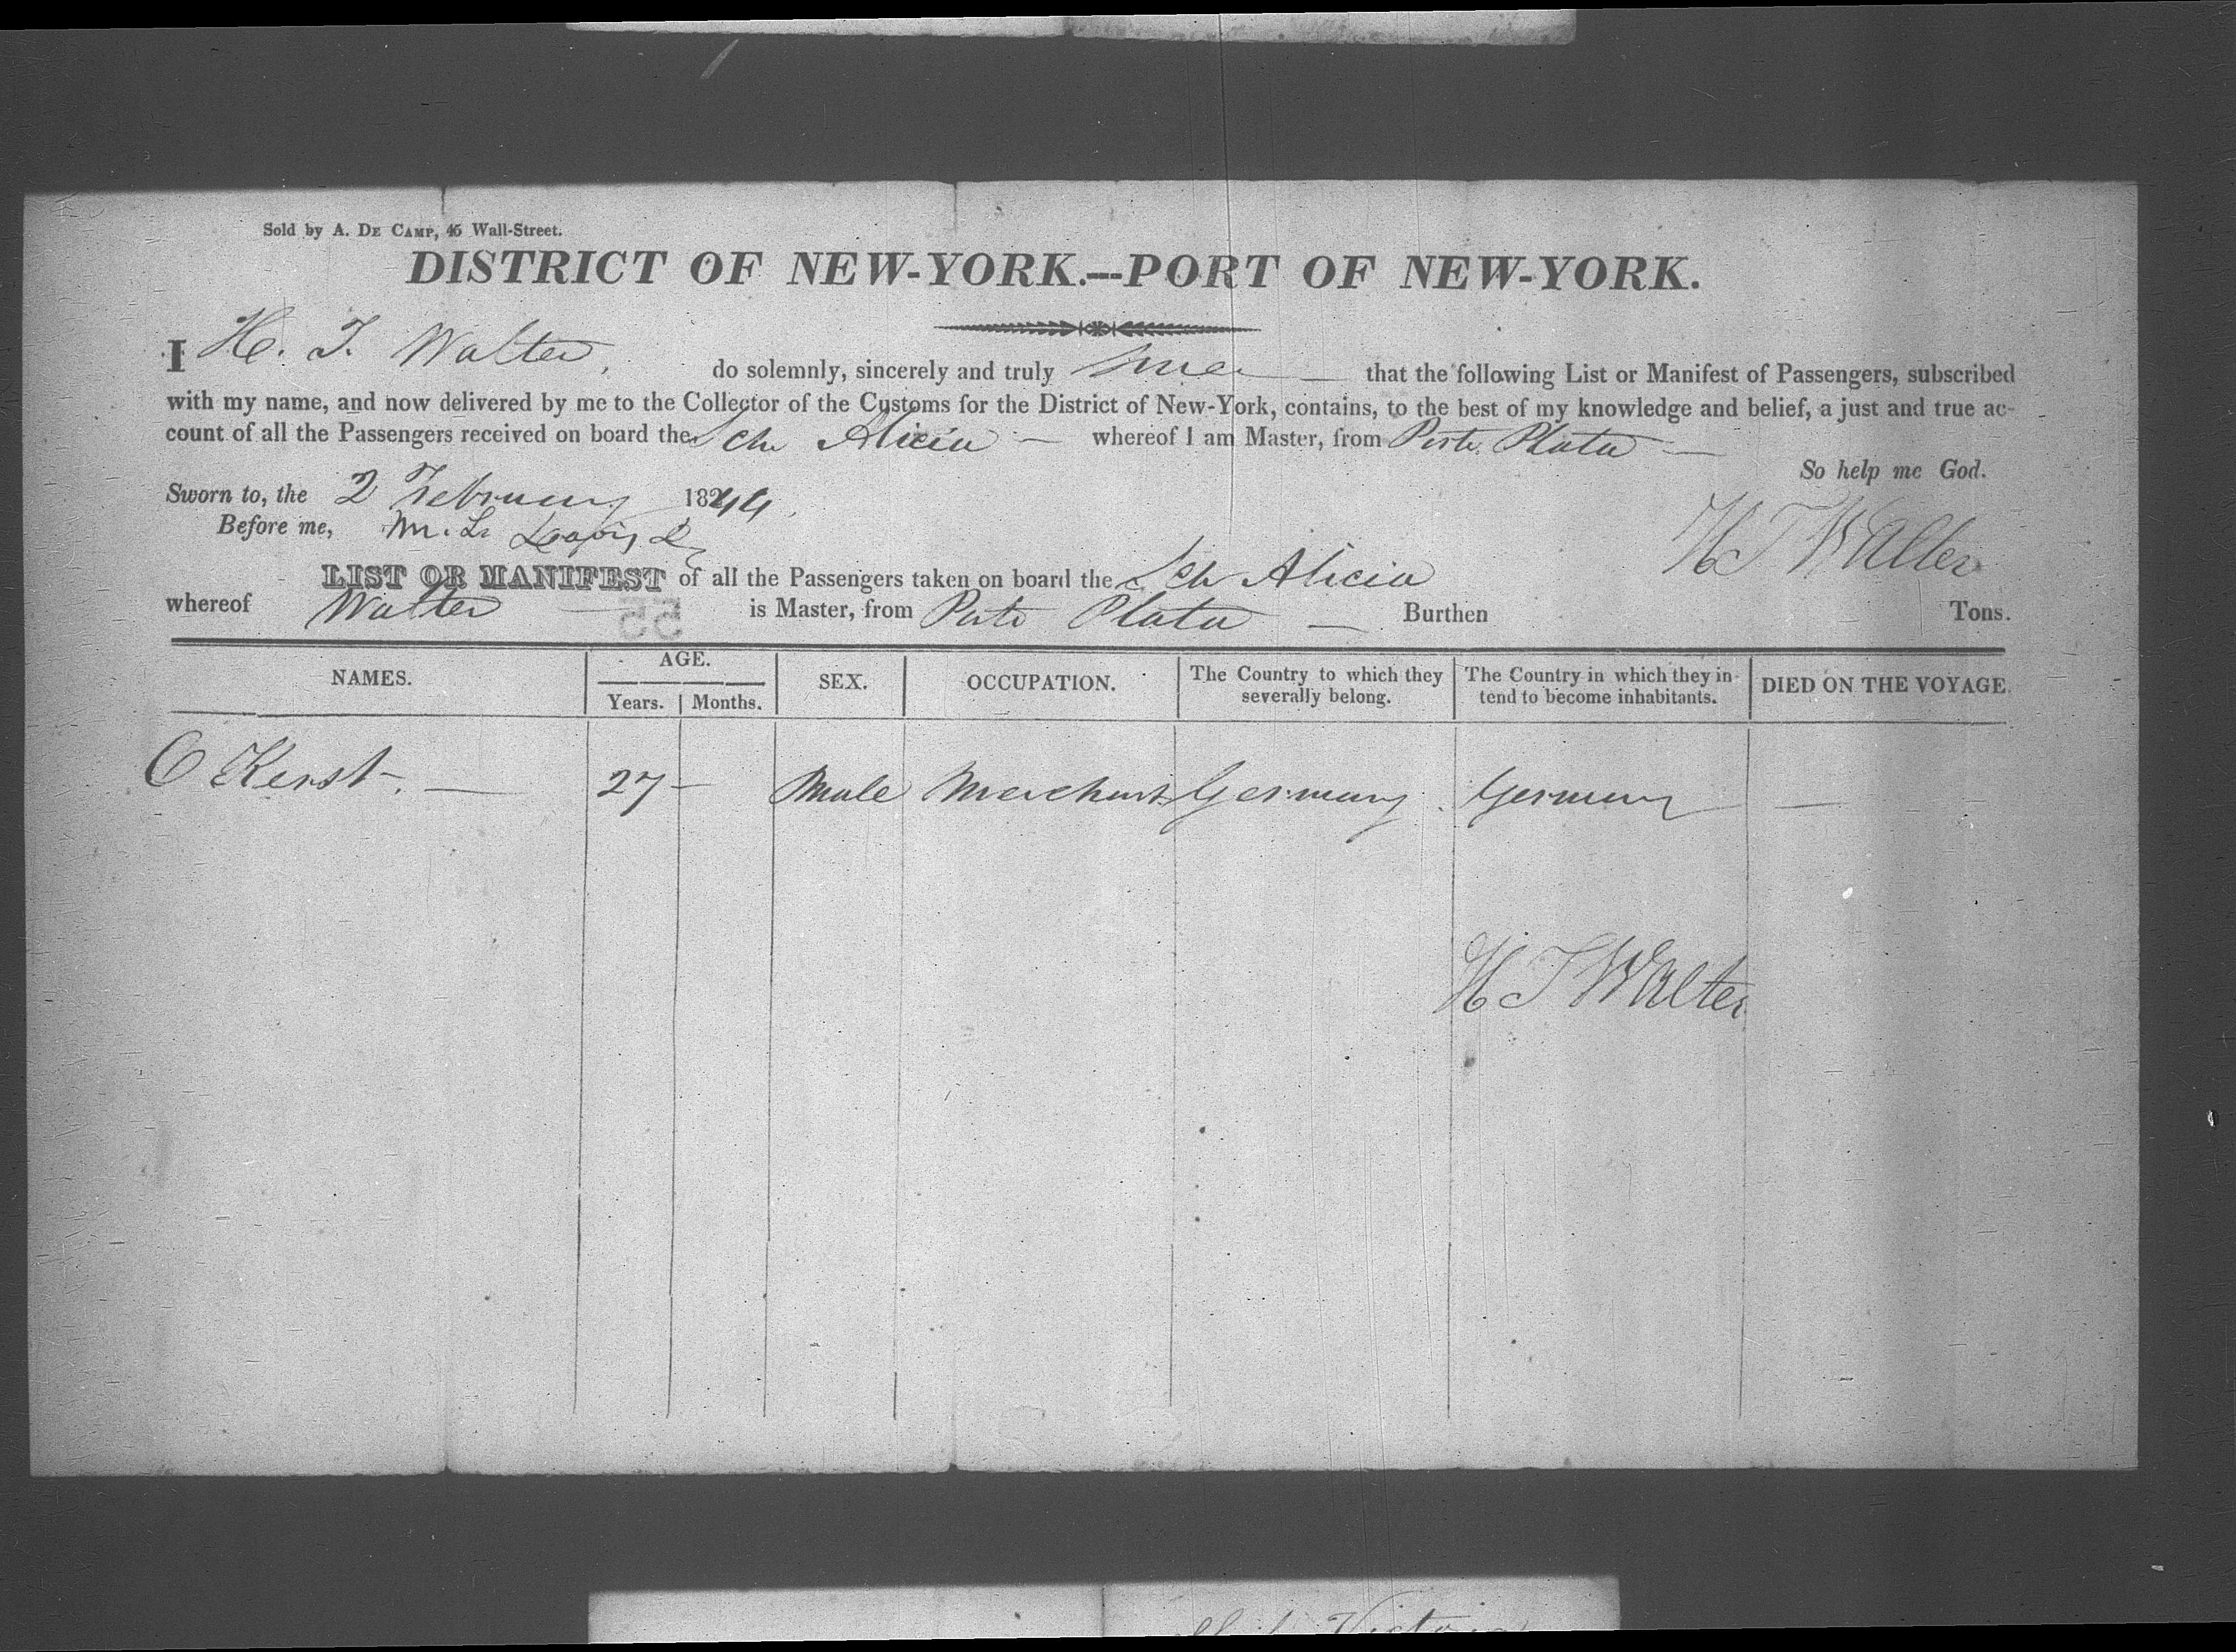 Sold by A. DE CAMP, 45 Wall-Street.
DISTRICT OF NEW-YORK.—PORT OF NEW-YORK.
I H. T. Walter, do solemnly, sincerely and truly swear that the following List or Manifest of Passengers, subscribed
with my name, and now delivered by me to the Collector of the Customs for the District of New-York, contains, to the best of my knowledge and belief, a just and true ac-
count of all the Passengers received on board the Sch Alicia whereof I am Master, from Porto Plata
So help me God.
Sworn to, the 2 February 1844.
Before me,
H T Walter
LIST OR MANIFEST of all the Passengers taken on board the Sch Alicia
whereof Walter is Master, from Porto Plata Burthen Tons.
55
NAMES. AGE. Years. Months. SEX. OCCUPATION. The Country to which they severally belong. The Country in which they in-tend to become inhabitants. DIED ON THE VOYAGE.
C Kerst. — 27 — Male Merchant Germany Germany —
H T Walter